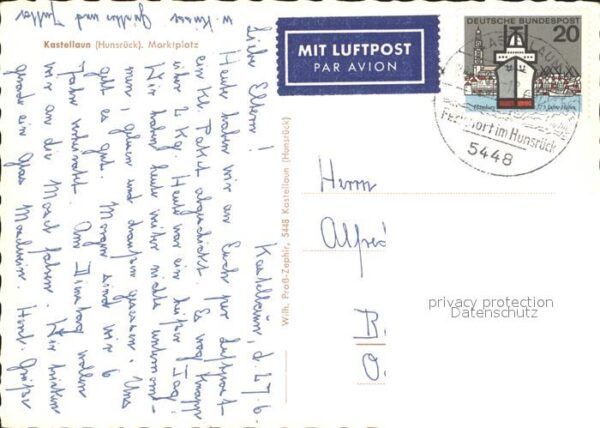 Kastellaun (Hunsrück), Marktplatz
MIT LUFTPOST
PAR AVION
DEUTSCHE BUNDESPOST
20
Hamburg
775 Jahre Hafen
Ferienort im Hunsrück
5448
Wilh. Praß-Zephir, 5448 Kastellaun (Hunsrück)
Kastellaun, d. 27.6.
Liebe Eltern!
Heute haben wir an Euch per Luftpost
ein Kl. Paket abgeschickt. Es wog knapp
über 2 Kg. Heute war ein heißer Tag;
Wir haben heute weiter nichts unternom-
men, gelesen und draußen gesessen. Uns
geht es gut. Morgen sind wir 6
Jahre verheiratet. Am Dienstag wollen
wir an die Mosel fahren. Wir trinken
gerade ein Glas Moselwein. Herzl. Grüße
Herrn
Alfred
B.
O.
privacy protection
Datenschutz